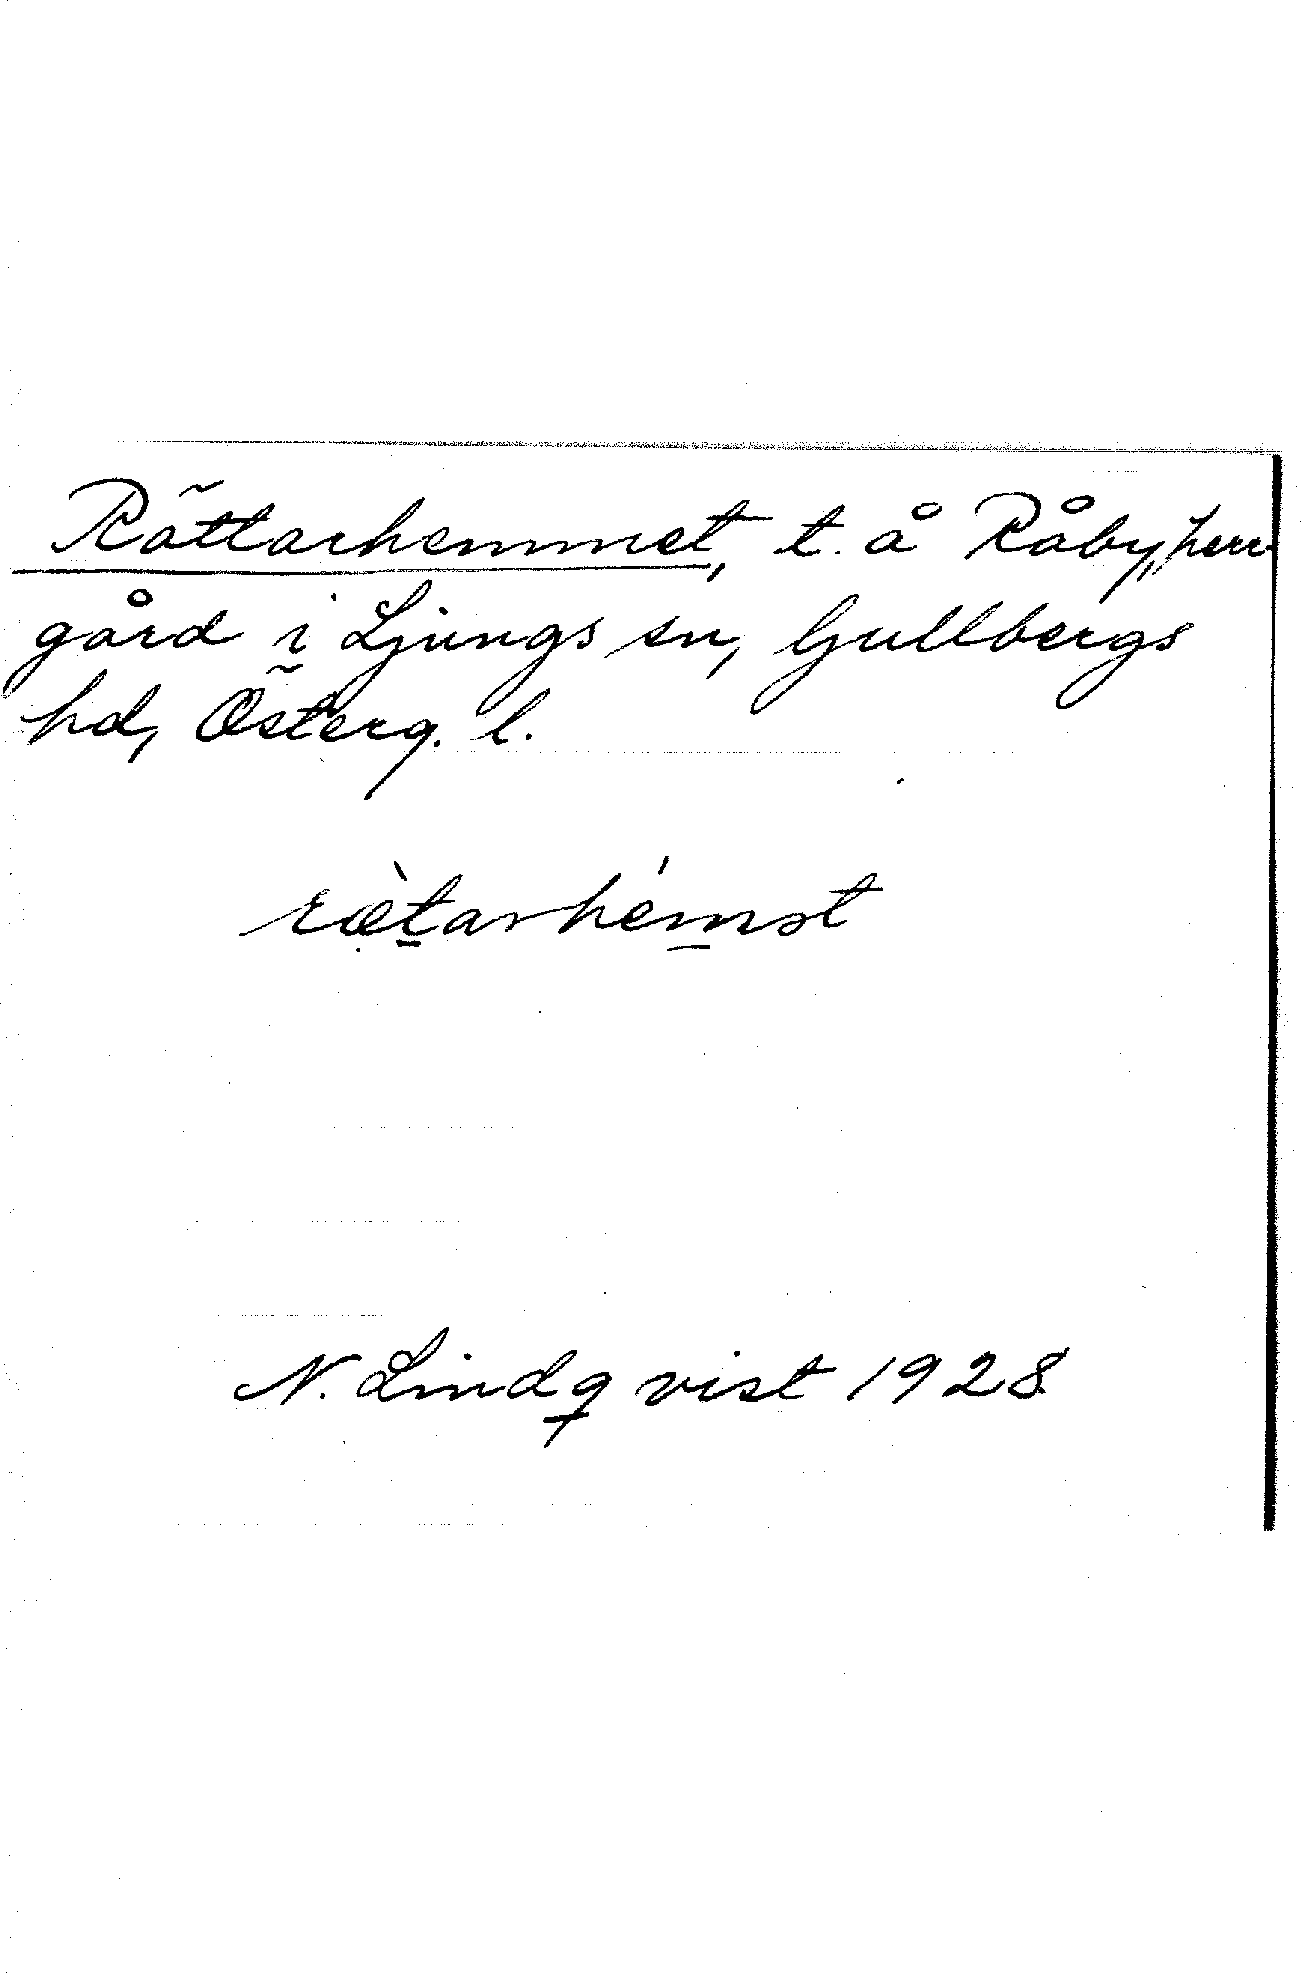 Rättarhemmet, t. å Råby, herr-
gård i Ljungs sn, Gullbergs
hd, Österg. l.
ræ̀tarhémət
N. Lindqvist 1928